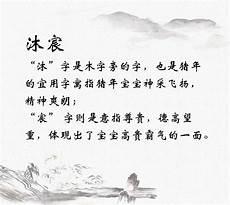 沐宸
“沐”字是木字旁的字，也是猪年
的宜用字寓指猪年宝宝神采飞扬，
精神爽朗；
“宸”字则是意指尊贵，德高望
重，体现出了宝宝高贵霸气的一面。